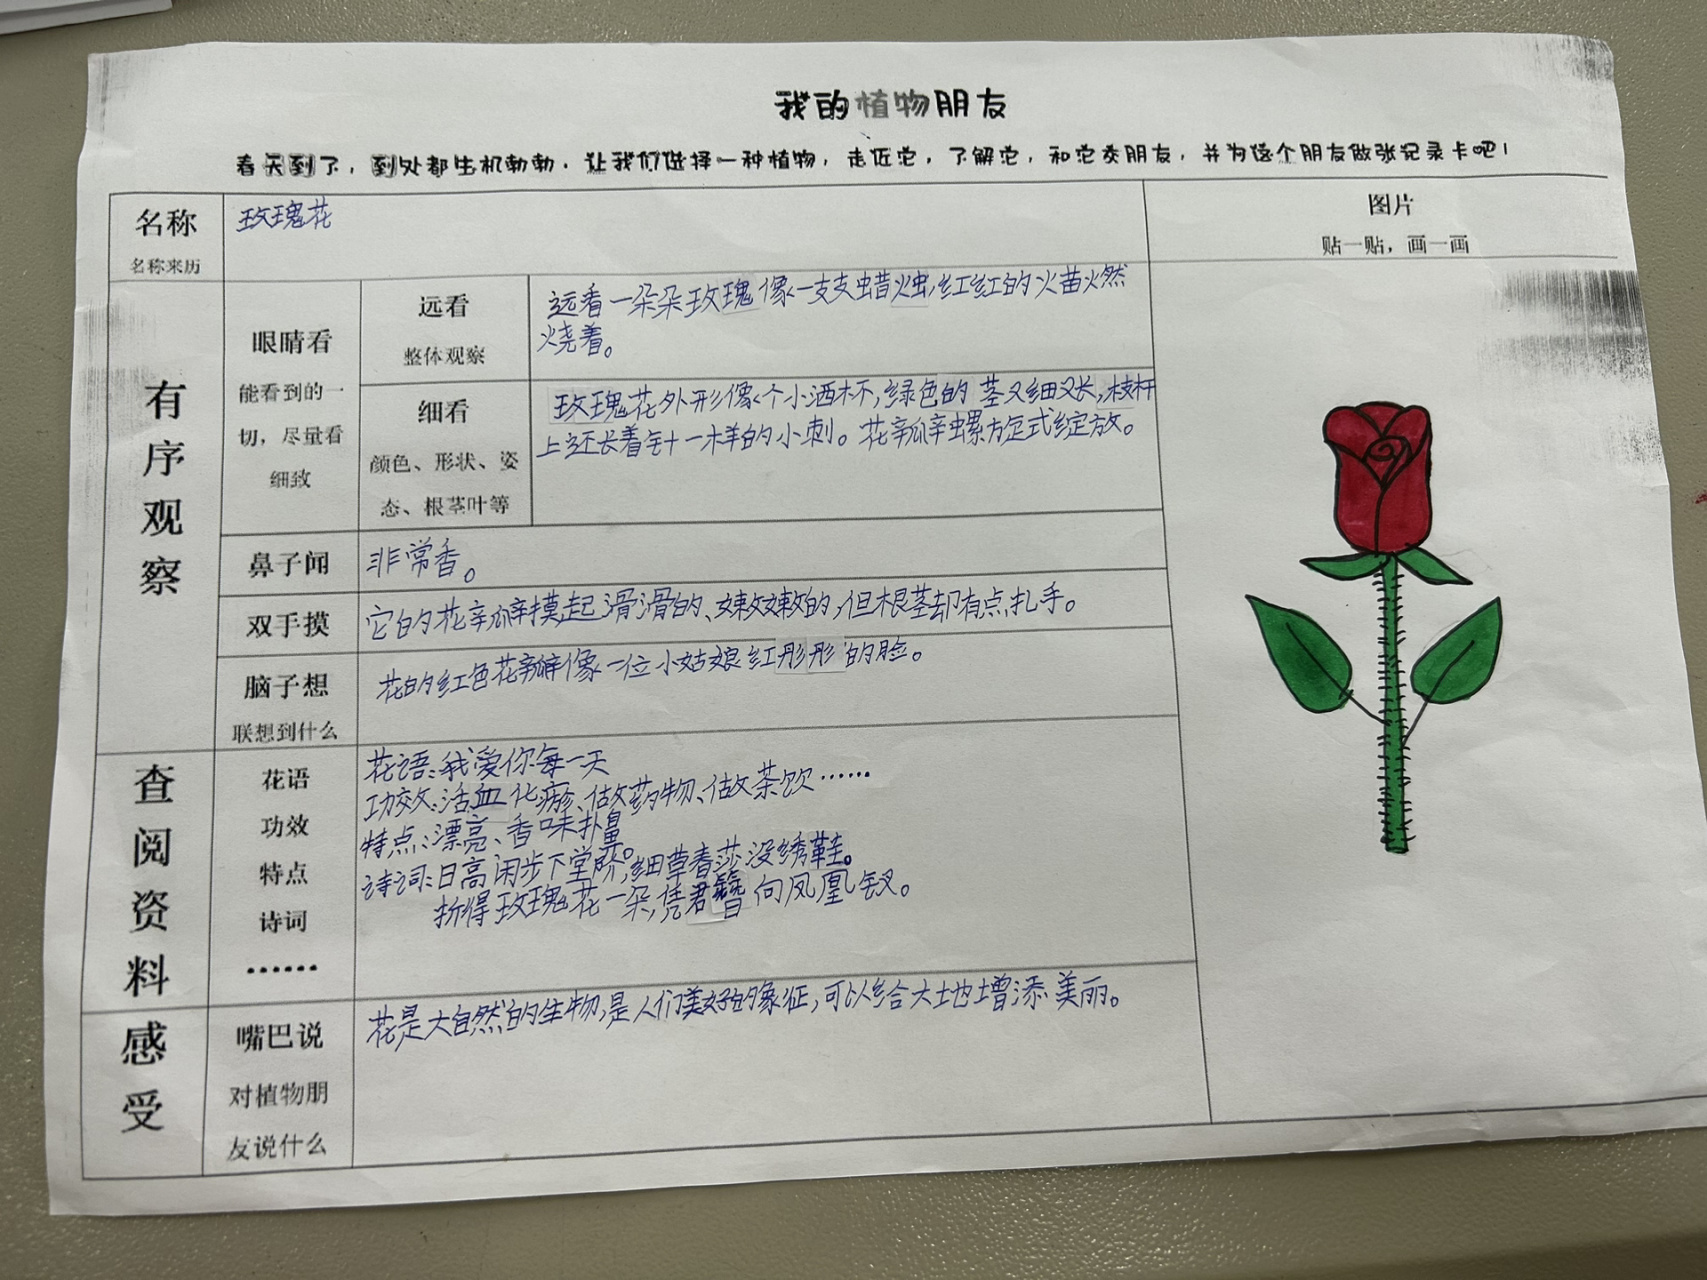 我的植物朋友
春天到了，到处都生机勃勃。让我们选择一种植物，走近它，了解它，和它交朋友，并为这个朋友做张纪录卡吧！
名称
名称来历
玫瑰花
图片
贴一贴，画一画
有序观察
眼睛看
能看到的一
切，尽量看
细致
远看
整体观察
远看一朵朵玫瑰像一支支蜡烛，红红的火苗燃
烧着。
细看
颜色、形状、姿
态、根茎叶等
玫瑰花外形像个小酒杯，绿色的茎又细又长，枝杆
上还长着针一样的小刺。花瓣螺旋式绽放。
鼻子闻
非常香。
双手摸
它的花瓣摸起滑滑的、嫩嫩的，但根茎却有点扎手。
脑子想
联想到什么
花的红色花瓣像一位小姑娘红彤彤的脸。
查阅资料
花语
功效
特点
诗词
……
花语：我爱你每一天
功效：活血化瘀、做药物、做茶饮……
特点：漂亮、香味扑鼻。
诗词：日高闲步下堂阶，细草春莎没绣鞋。
折得玫瑰花一朵，凭君簪向凤凰钗。
感受
嘴巴说
对植物朋
友说什么
花是大自然的生物，是人们美好的象征，可以给大地增添美丽。